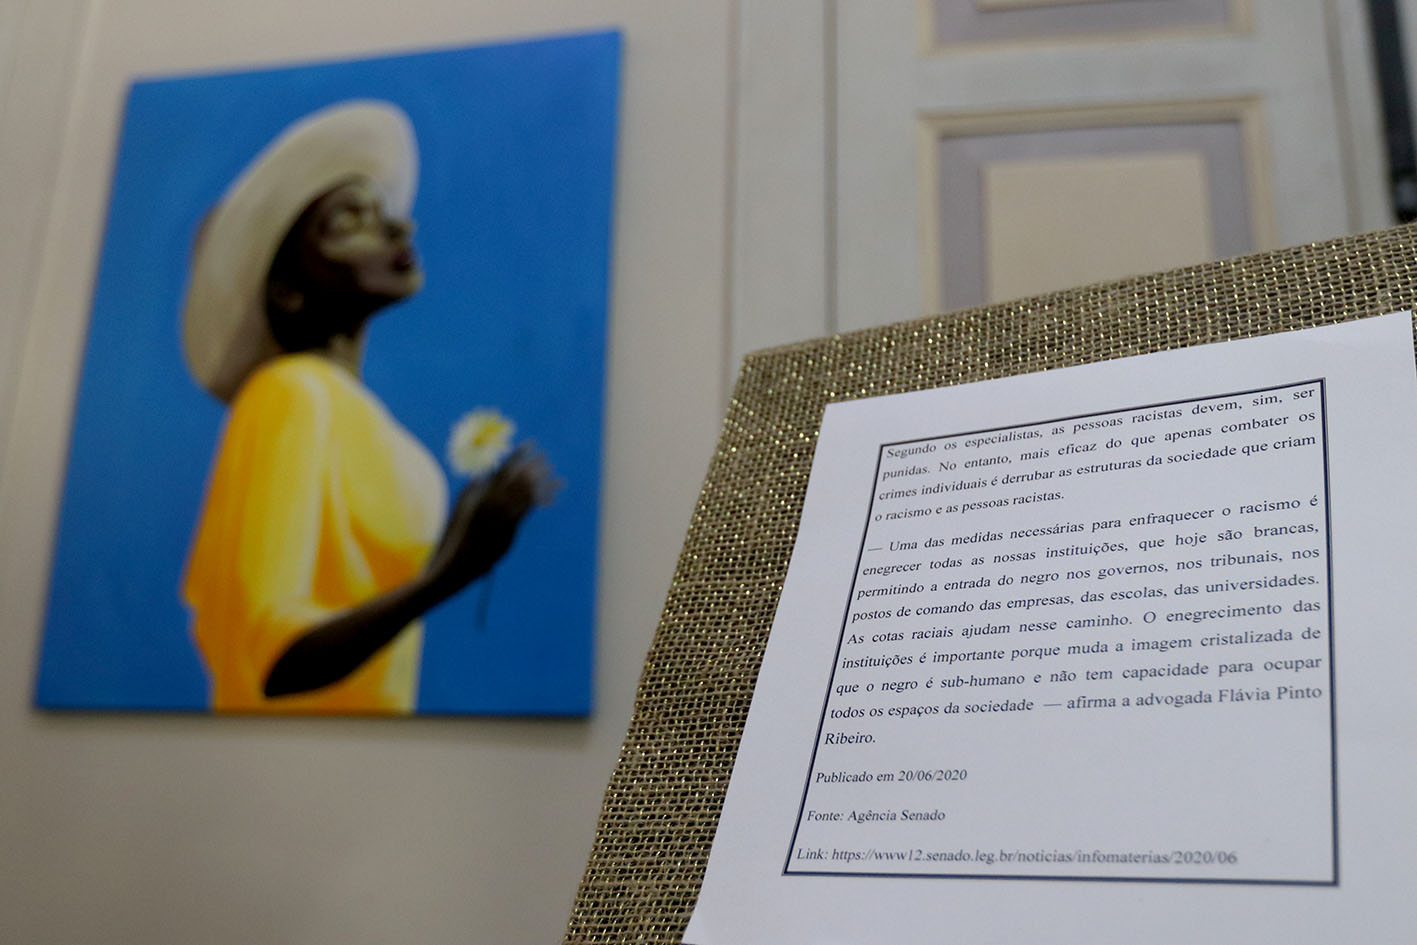 Segundo os especialistas, as pessoas racistas devem, sim, ser
punidas. No entanto, mais eficaz do que apenas combater os
crimes individuais é derrubar as estruturas da sociedade que criam
o racismo e as pessoas racistas.
— Uma das medidas necessárias para enfraquecer o racismo é
enegrecer todas as nossas instituições, que hoje são brancas,
permitindo a entrada do negro nos governos, nos tribunais, nos
postos de comando das empresas, das escolas, das universidades.
As cotas raciais ajudam nesse caminho. O enegrecimento das
instituições é importante porque muda a imagem cristalizada de
que o negro é sub-humano e não tem capacidade para ocupar
todos os espaços da sociedade — afirma a advogada Flávia Pinto
Ribeiro.
Publicado em 20/06/2020
Fonte: Agência Senado
Link: https://www12.senado.leg.br/noticias/infomaterias/2020/06